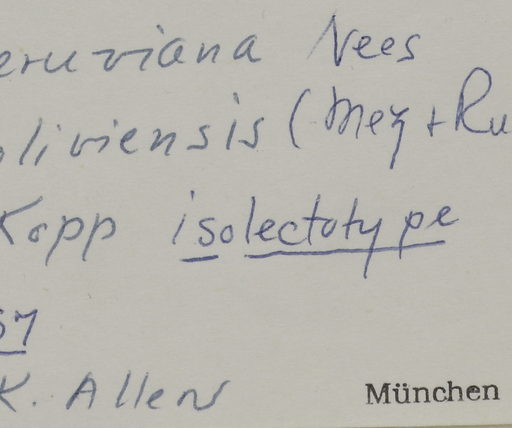 eruviana Nees
oliviensis (Mez + Ru
Kopp isolectotype
57
K. Allen
München